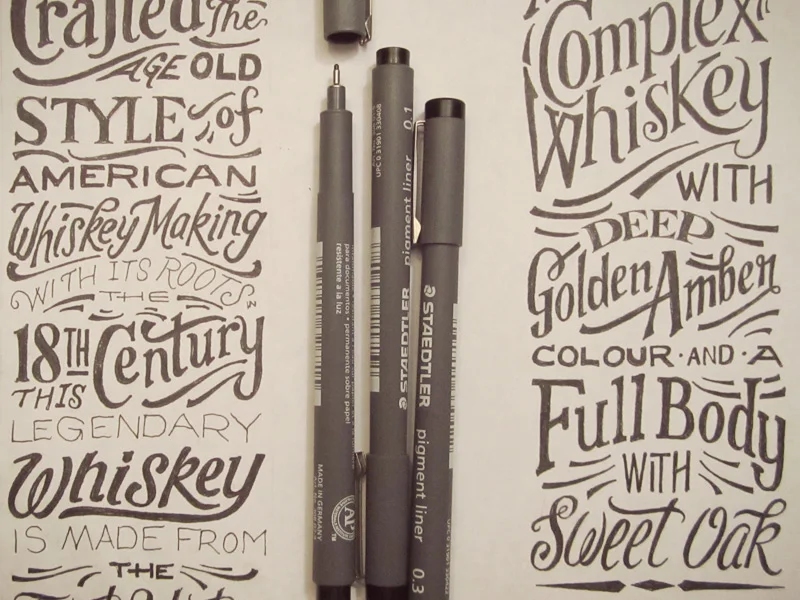 Crafted The
AGE OLD
STYLE of
AMERICAN
Whiskey Making
WITH ITS ROOTS IN
THE
18TH Century
THIS
LEGENDARY
Whiskey
IS MADE FROM
THE
para documentos • permanente sobre papel
resistente a la luz
MADE IN GERMANY
AP
TM
UPC 0 31901 330408
STAEDTLER pigment liner 0.1
STAEDTLER pigment liner 0.3
Complex
Whiskey
WITH
DEEP
Golden Amber
COLOUR · AND · A
Full Body
WITH
Sweet Oak